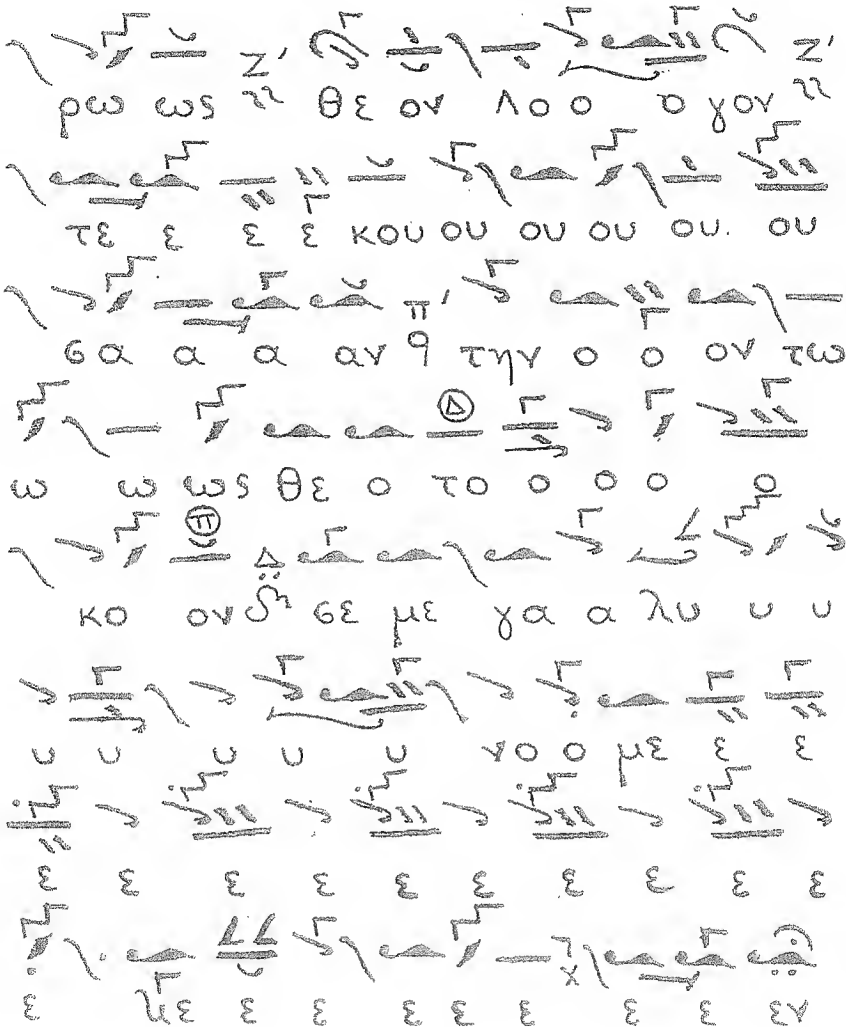 ρω ως Ζ' θε ον λο ο ο γον Ζ'
τε ε ε ε κου ου ου ου ου. ου
σα α α αν π' q την ο ο ον τω
ω ω ως θε ο το ο ο ο ο
κο ον Δ σε με γα α λυ υ υ
υ υ υ υ υ νο ο με ε ε
ε ε ε ε ε ε ε ε ε ε
ε με ε ε ε ε ε ε ε εν